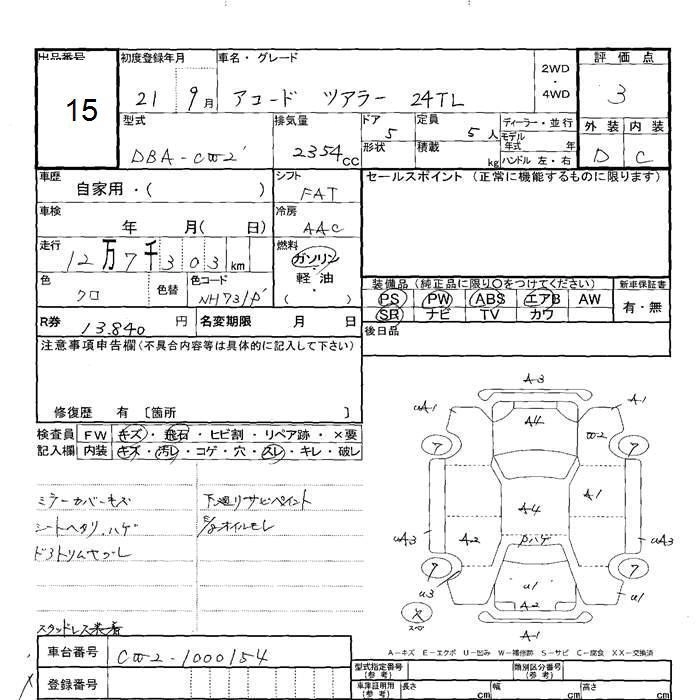 出品番号 初度登録年月 車名・グレード 2WD・4WD 評価点
15 21 9月 アコード ツアラー 24TL 3
型式 排気量 ドア 定員 ディーラー・並行 外装 内装
DBA-CW2 2354cc 5 5人 モデル年式 年 D C
形状 積載 kg ハンドル 左・右
車歴 シフト セールスポイント(正常に機能するものに限ります)
自家用・( ) FAT
車検 冷房
年 月( 日) AAC
走行 燃料
12万7千303km ガソリン
色 色替 色コード 軽油 装備品(純正品に限り○をつけてください) 新車保証書
クロ NH731P ( ) PS PW ABS エアB AW 有・無
R券 13,840円 名変期限 月 日 SR ナビ TV カワ
注意事項申告欄(不具合内容等は具体的に記入して下さい) 後日品
修復歴 有 〔箇所 〕
検査員 FW キズ・飛石・ヒビ割・リペア跡・×要
記入欄 内装 キズ・汚レ・コゲ・穴・スレ・キレ・破レ
ミラーカバーキズ 下廻りサビペイント
シートヘタリ、ハゲ E/gオイルモレ
スタッドレス装着
A-3
uA-1 A-4 A-1
7 W-2 7
A-1
A-4
uA3 A-2 Pハゲ uA3
7 7
u3 u1 u1
A-2
A-1
スペ
A-キズ E-エクボ U-凹み W-補修跡 S-サビ C-腐食 XX-交換済
車台番号 CW2-1000154
型式指定番号(参考) 類別区分番号(参考)
登録番号 車庫証明用(参考) 長さ cm 幅 cm 高さ cm